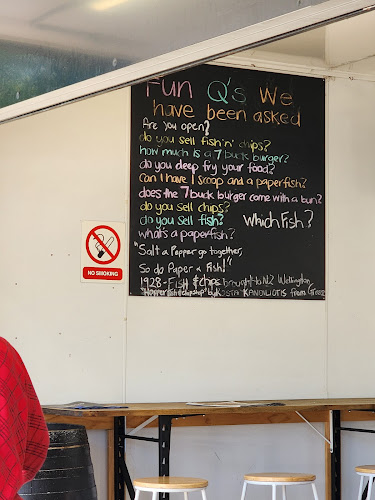 Fun Q's We
have been asked
Are you open?
do you sell fish 'n' chips?
how much is a 7 buck burger?
do you deep fry your food?
Can I have 1 scoop and a paperfish?
does the 7 buck burger come with a bun?
do you sell chips?
do you sell fish? Which Fish?
what's a paperfish?
"Salt a Pepper go together,
So do Paper a Fish!"
1928-Fish & chips brought to NZ Wellington
by from Greece
NO SMOKING